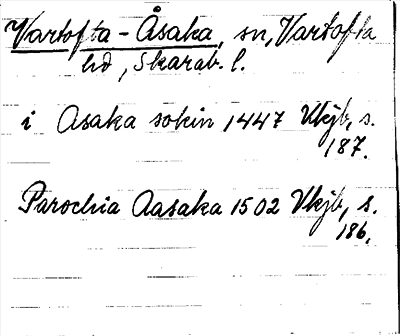 Vartofta-Åsaka, sn, Vartofta
hd, Skarab. l.
i Asaka sokin 1447 Vkjb, s.
187.
Parochia Aasaka 1502 Vkjb, s.
186.